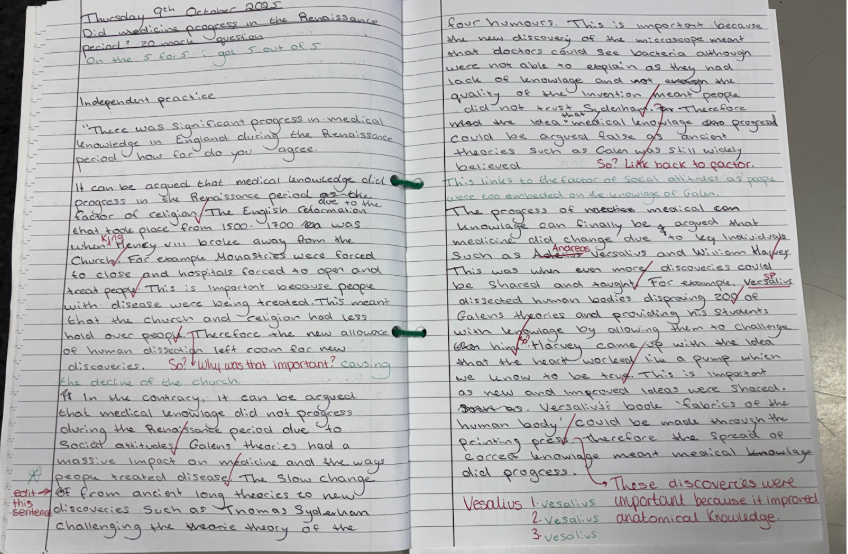 Thursday 9th October 2025
Did medicine progress in the Renaissance
period? 20 mark question
On the 5 for 5 i got 5 out of 5
Independent practice
"There was significant progress in medical
knowledge in England during the Renaissance
period how far do you agree.
It can be argued that medical knowledge did
progress in the Renaissance period as the due to the
factor of religion. The English reformation
that took place from 1500-1700 was
when King Henry VIII broke away from the
Church. For example Monastries were forced
to close and hospitals forced to open and
treat peopl. This is important because people
with disease were being treated. This meant
that the church and religion had less
hold over peopl. Therefore the new allowance
of human dissection left room for new
discoveries. So? Why was that important? causing
the decline of the church.
In the contracy, it can be argued
that medical knowlage did not progress
during the Renaissance period due to
Social attitudes. Galens theories had a
massive impact on medicine and the ways
peopl treated disease. The slow change
edit this sentence
of from ancient long theories to new
discoveries such as Thomas Sydenham
challenging the theorie theory of the
four humours. This is important because
the new discovery of the microscope meant
that doctors could see bacteria although
were not able to explain as they had
lack of knowlage and not enough the
quality of the invention meant people
did not trust Sydenham. Therefore
the idea that medical knowlage progressed
could be argued false as ancient
theories such as Galen was still widely
believed So? Link back to factor.
This links to the factor of social attitudes as people
were too embeded on the knowlage of Galen.
The progress of medical can
knowlage can finally be argued that
medicine did change due to key individuals
Such as Andreas Versalius and William Harvey
This was when even more discoveries could
be shared and taught. For example, Versalius sp
dissected human bodies disproving 200 of
Galens theories and providing his students
with knowlage by allowing them to challenge
him. So? Harvey came up with the idea
that the heart worked like a pump which
we know to be true. This is important
as new and improved ideas were shared.
Versalius's book 'fabrics of the
human body' could be made through the
printing press. Therefore the spread of
correct knowlage meant medical knowlage
did progress.
These discoveries were
important because it improved
anatomical knowledge.
Vesalius 1. Vesalius
2. Vesalius
3. Vesalius